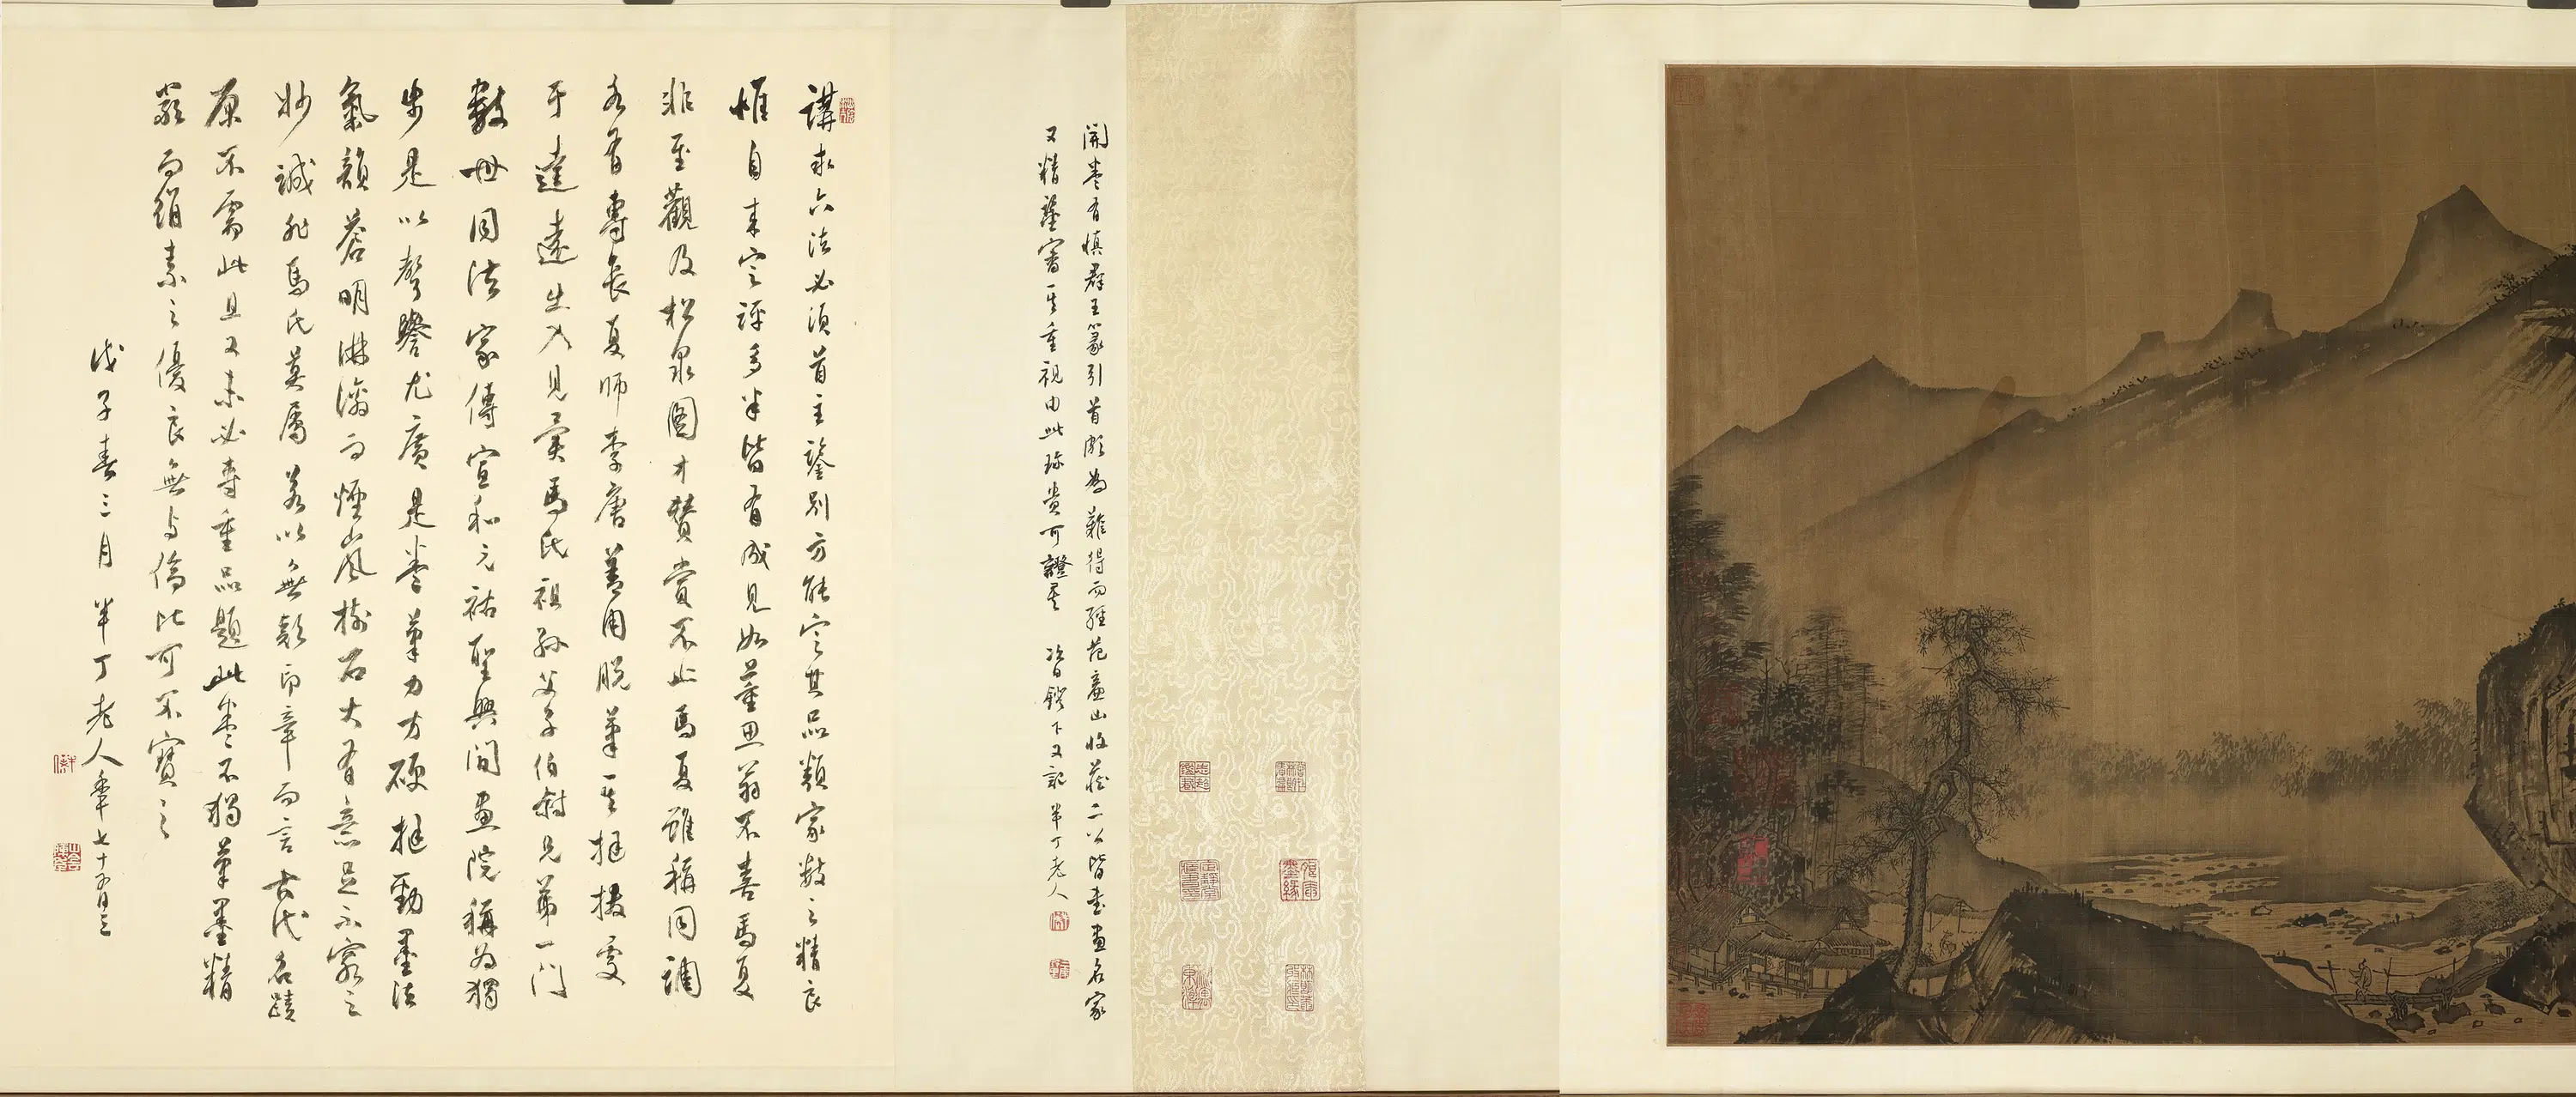 開卷有慎群王篆引首頗為難得而經范廉山收藏二公皆書畫名家
又精鑒審其重視由此珍貴可證矣 次日鐙下又記半丁老人
講求六法必須首主鑒別方能定其品類家數之精良
惟自來定評多半皆有成見如董思翁不喜馬夏
非至觀及松泉圖才贊賞不止馬夏雖稱同調
各有專長夏師李唐善用脫筆其挺拔處
于達遠出入見奕馬氏祖孫父子伯叔兄弟一門
數世同法家傳宣和元祐聖興間畫院稱為獨
步是以聲譽尤廣是卷筆力方硬挺勁墨法
氣韻蒼明淋漓而煙山風樹石大有意足不窮之
妙誠非馬氏莫屬若以無款印章而言古代名蹟
原不需此且又未必專重品題此卷不獨筆墨精
嚴而絹素之優良無與倫比可不寶之
戊子春三月 半丁老人年七十有三